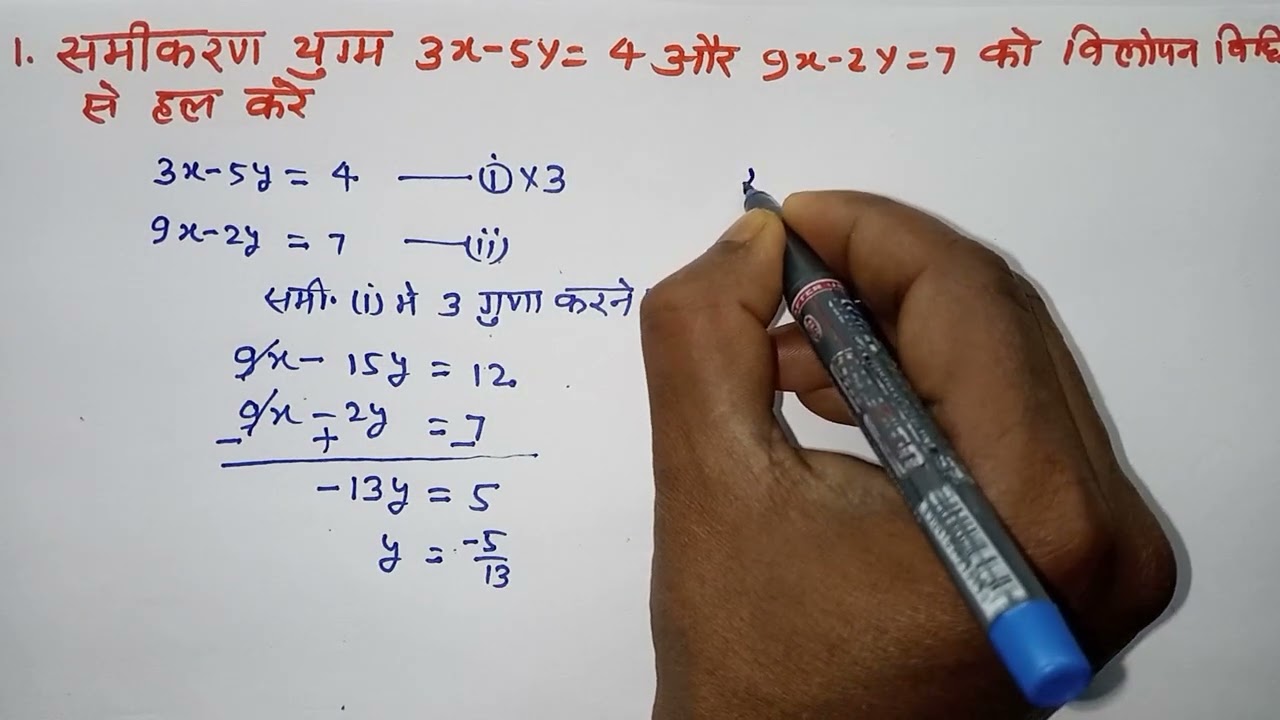 1. समीकरण युग्म 3x-5y= 4 और 9x-2y=7 को विलोपन
से हल करें
3x-5y = 4 —— (i) ×3
9x-2y = 7 —— (ii)
समी. (i) मे 3 गुणा करने
9x - 15y = 12.
9x - 2y = 7
- + -
-13y = 5
y = -5/13